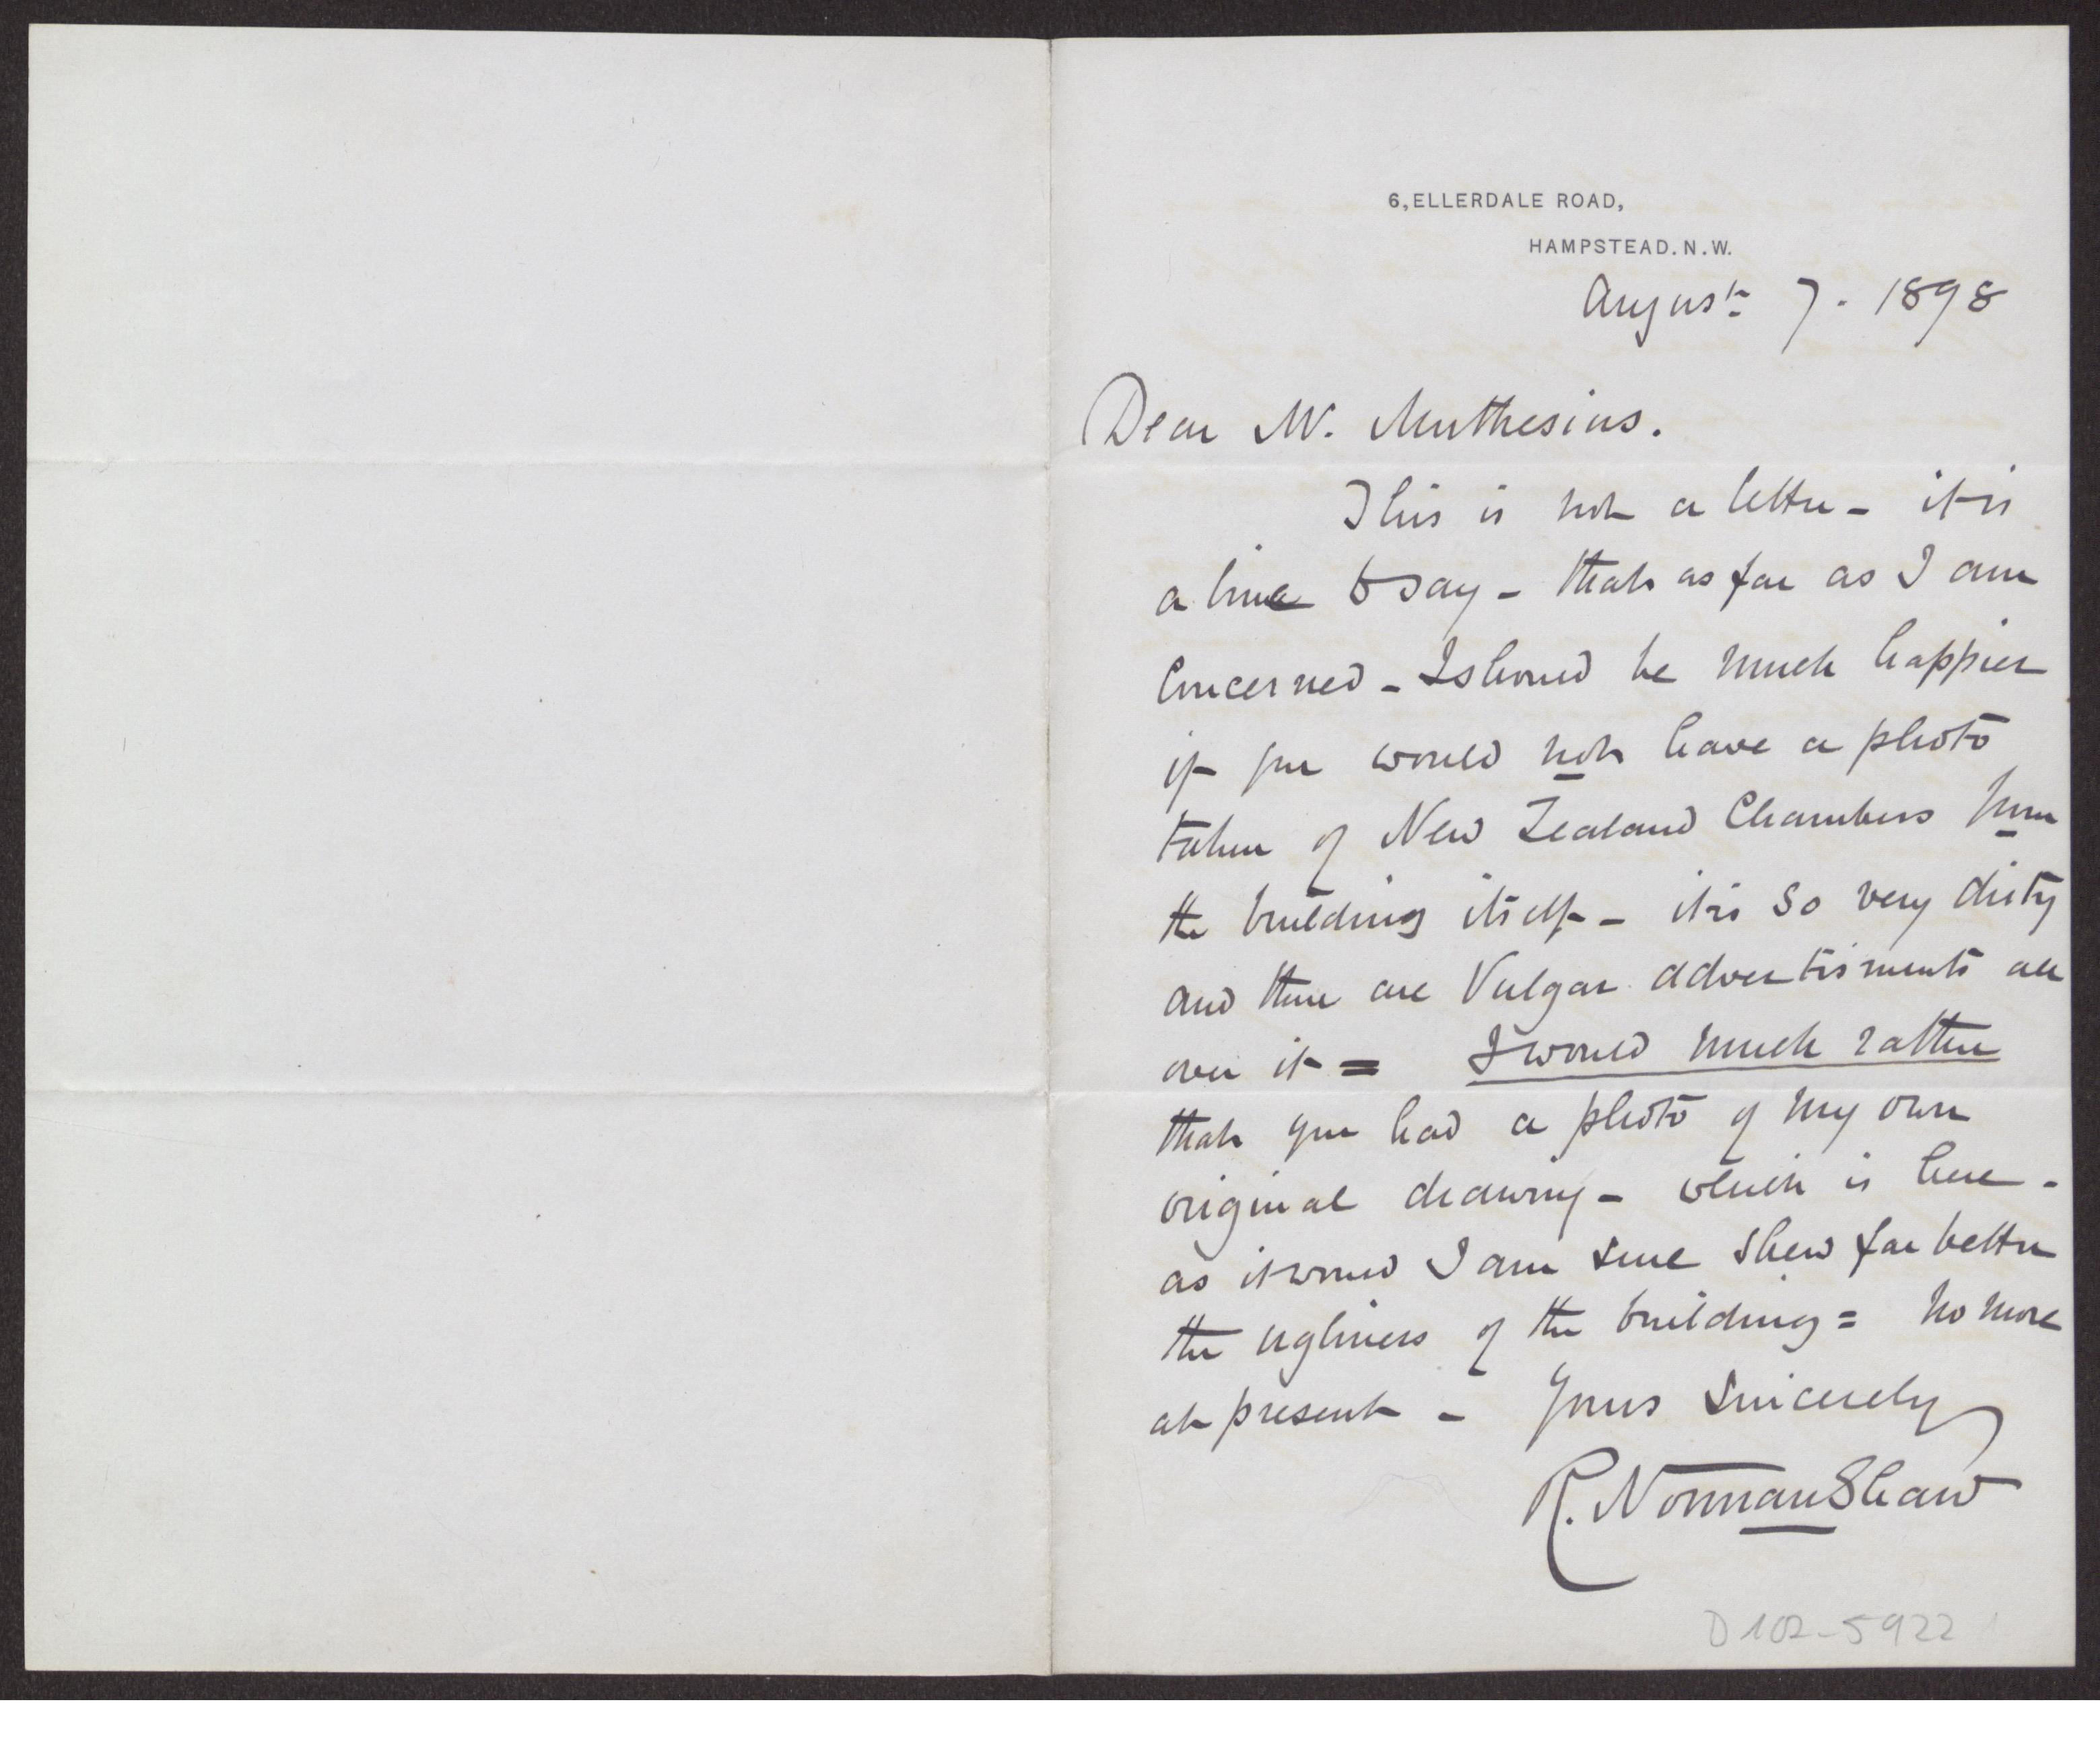 6, ELLERDALE ROAD,
HAMPSTEAD. N. W.
August 7. 1898
Dear Mr. Muthesius.
This is not a letter - it is
a line to say - that as far as I am
concerned - I should be much happier
if you would not have a photo
taken of New Zealand Chambers from
the building itself - it is so very dirty
and there are Vulgar advertisments all
over it = I would much rather
that you had a photo of my own
original drawing - which is here -
as it would I am sure shew far better
the ugliness of the building = No more
at present - Yours Sincerely
R. Norman Shaw
D 102-5922